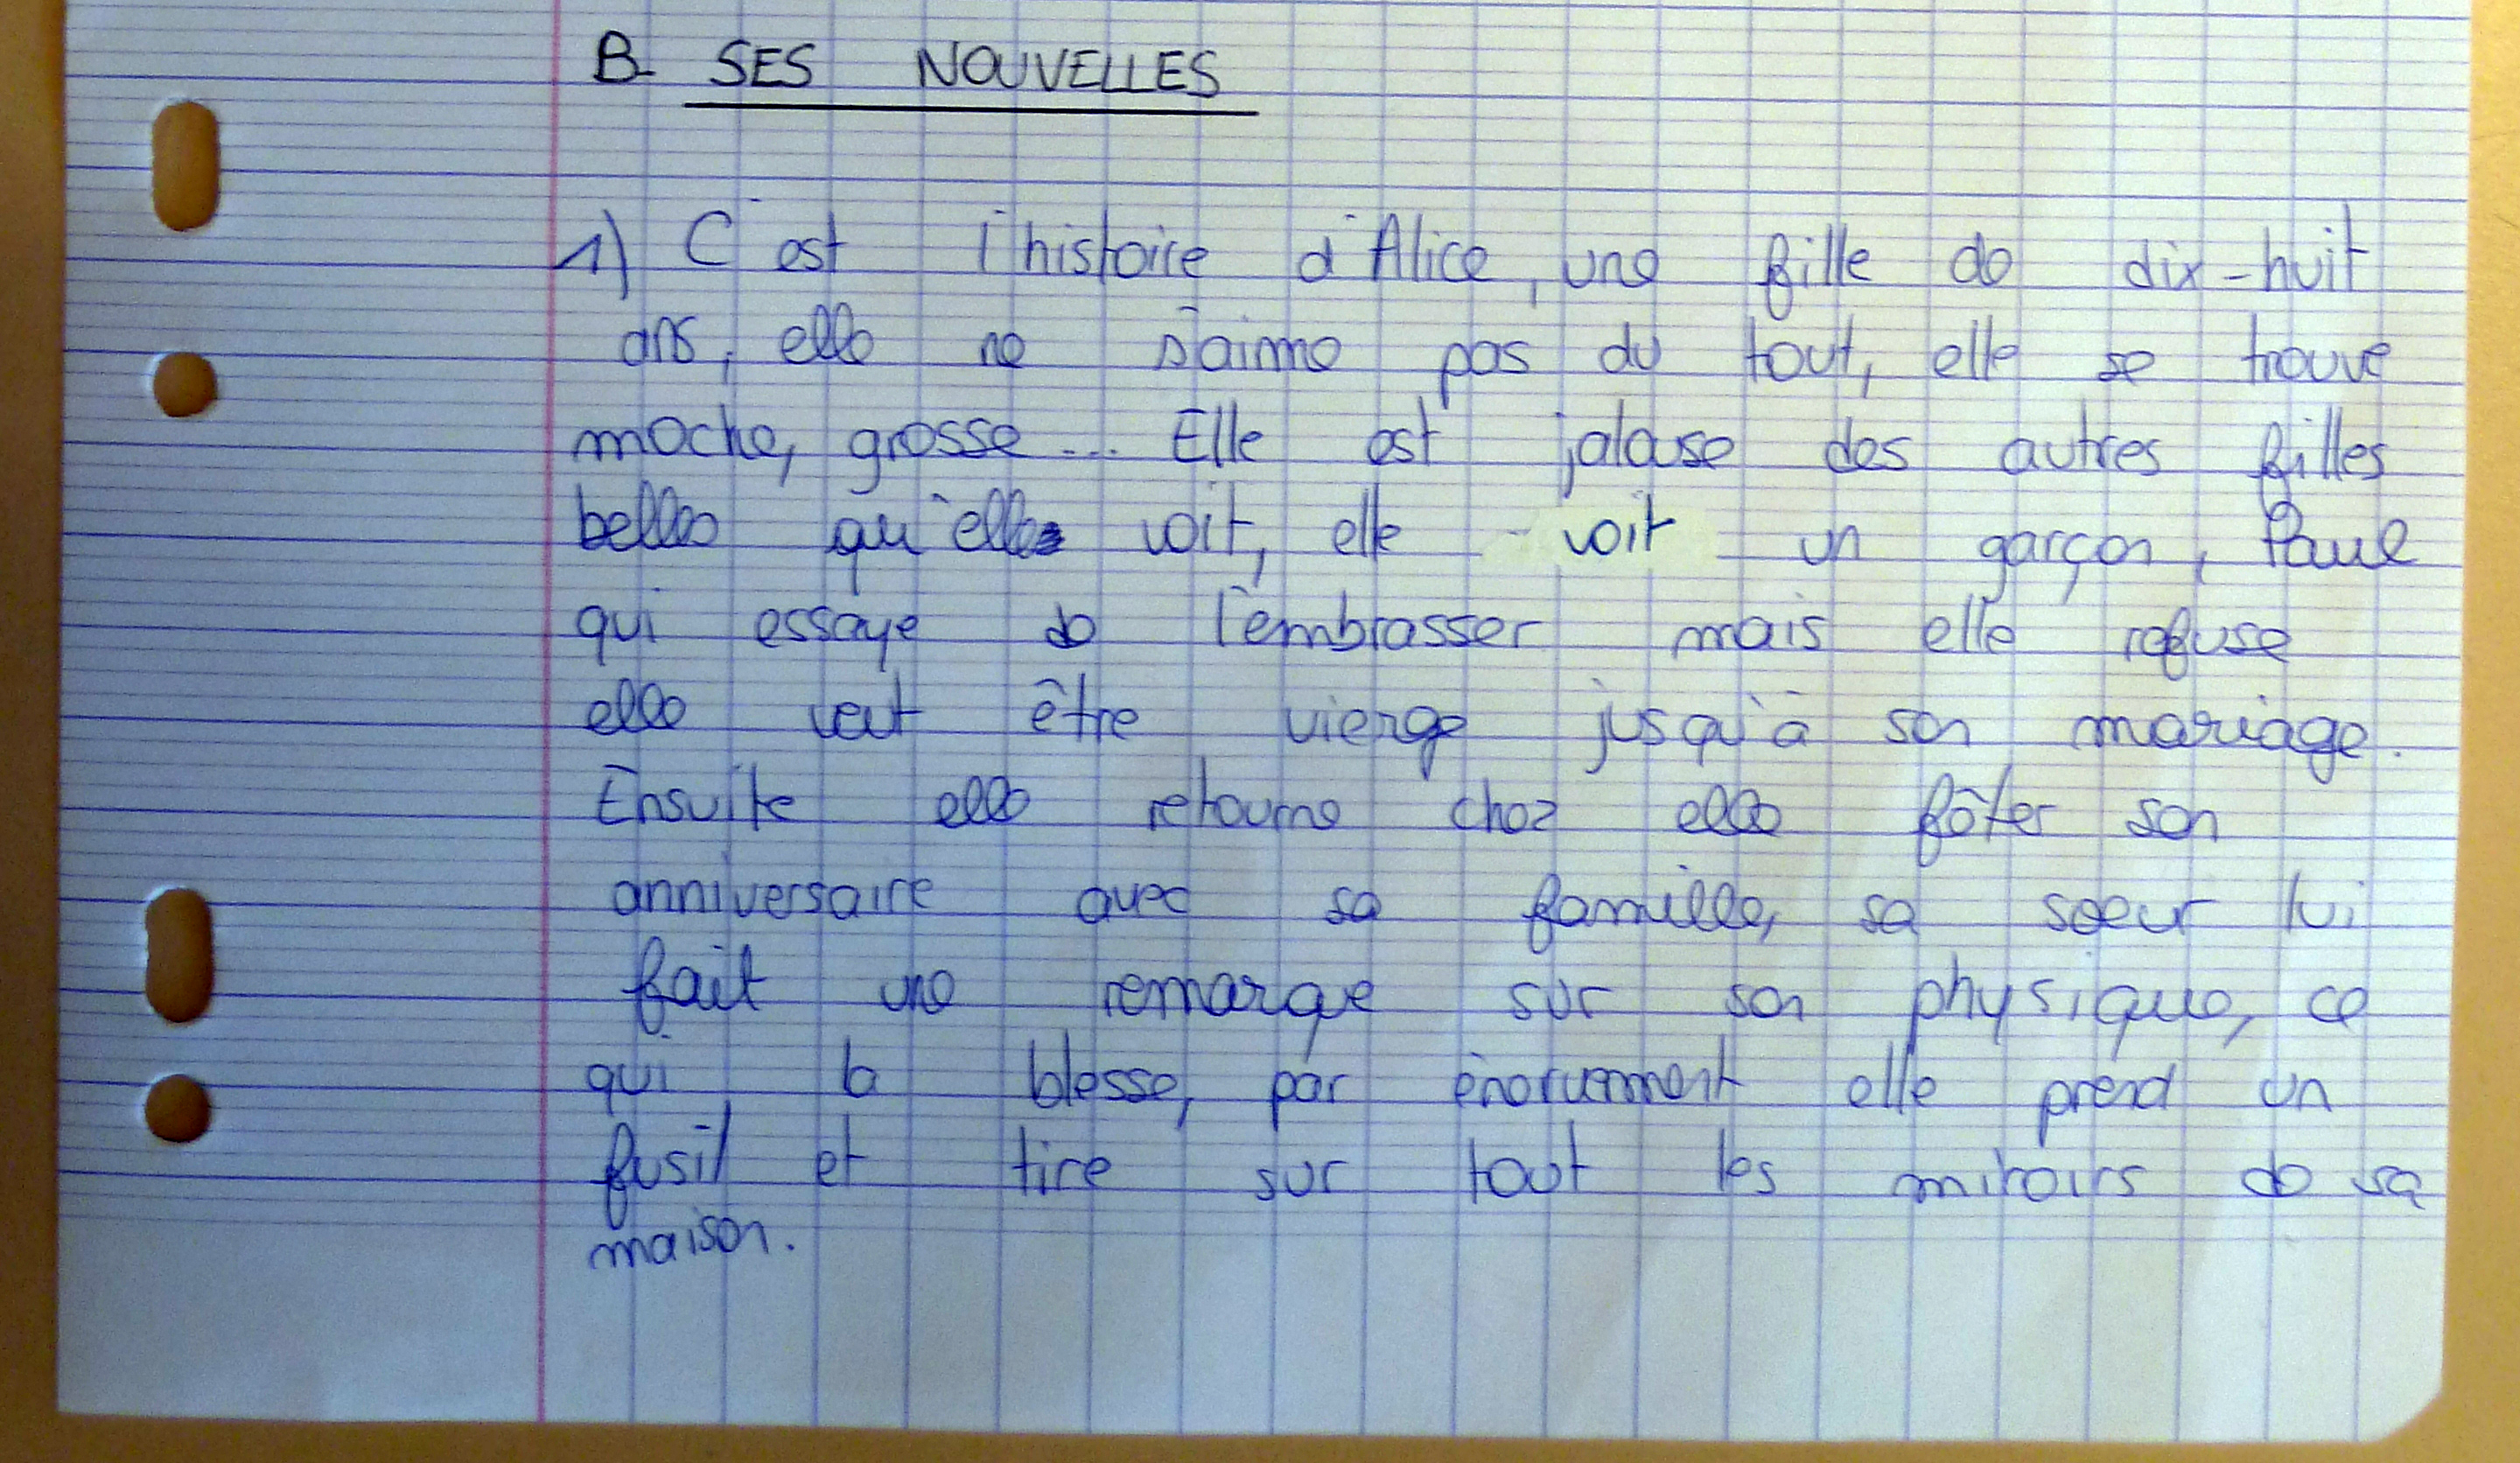 B- SES NOUVELLES
1) C'est l'histoire d'Alice, une fille de dix-huit
ans, elle ne s'aime pas du tout, elle se trouve
moche, grosse... Elle est jalouse des autres filles
belles qu'elle voit, elle voit un garçon, Paul
qui essaye de l'embrasser mais elle refuse
elle veut être vierge jusqu'à son mariage.
Ensuite elle retourne chez elle fêter son
anniversaire avec sa famille, sa soeur lui
fait une remarque sur son physique, ce
qui la blesse, par énervement elle prend un
fusil et tire sur tout les miroirs de sa
maison.